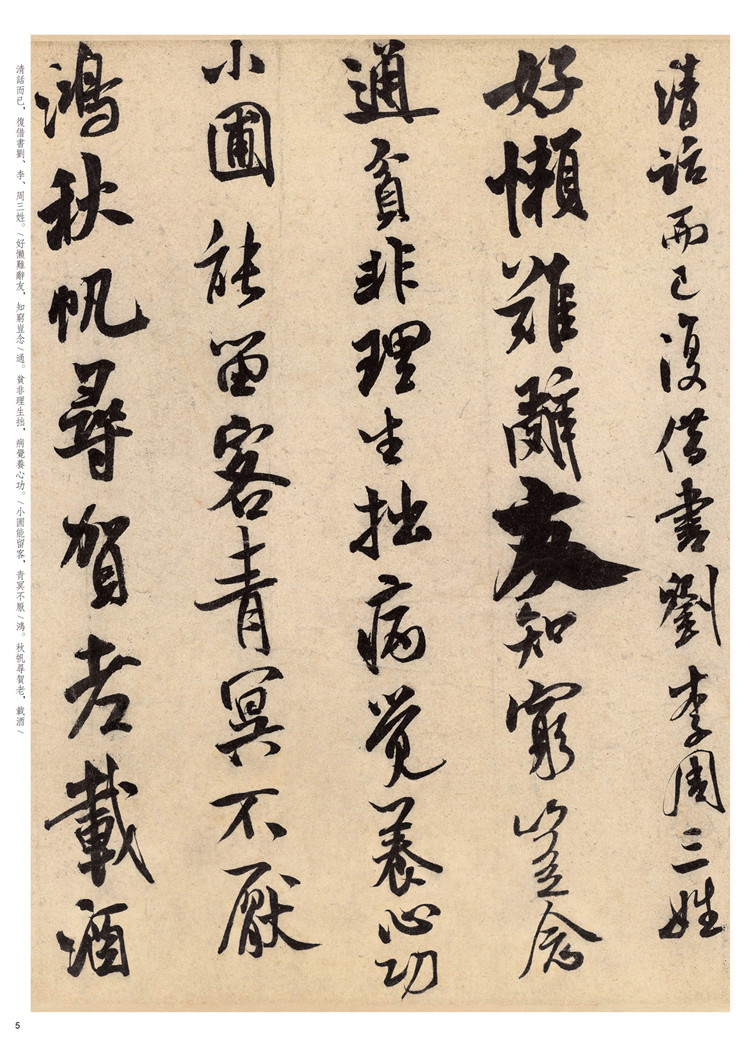 清話而已復借書劉李周三姓
好懶難辭友知窮豈念
通貧非理生拙病覺養心功
小圃能留客青冥不厭
鴻秋帆尋賀老載酒
清話而已，復借書劉、李、周三姓。/好懶難辭友，知窮豈念/通。貧非理生拙，病覺養心功。/小圃能留客，青冥不厭/鴻。秋帆尋賀老，載酒/
5